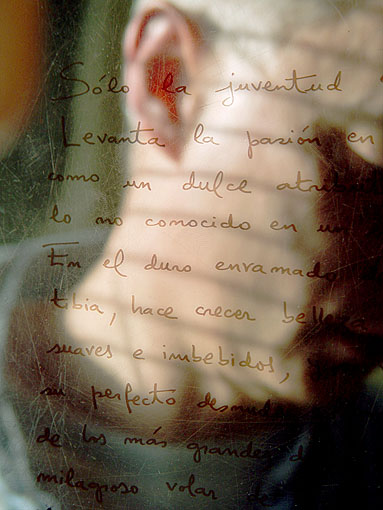 Sólo la juventud
Levanta la pasión en
como un dulce
lo no conocido en
En el duro enramado
tibia, hace crecer
suaves e imbebidos,
su perfecto
de los más grandes
milagroso volar de